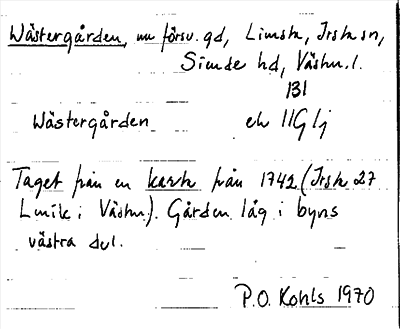 Wästergården, nu försv. gd, Limsh, Irsk sn,
Simde hd, Västm. l.
131
Wästergården ek 11G lj
Taget från en karta från 1742 (Irsk 27
Lmlk i Västm.). Gården låg i byns
västra del.
P.O. Kohls 1970